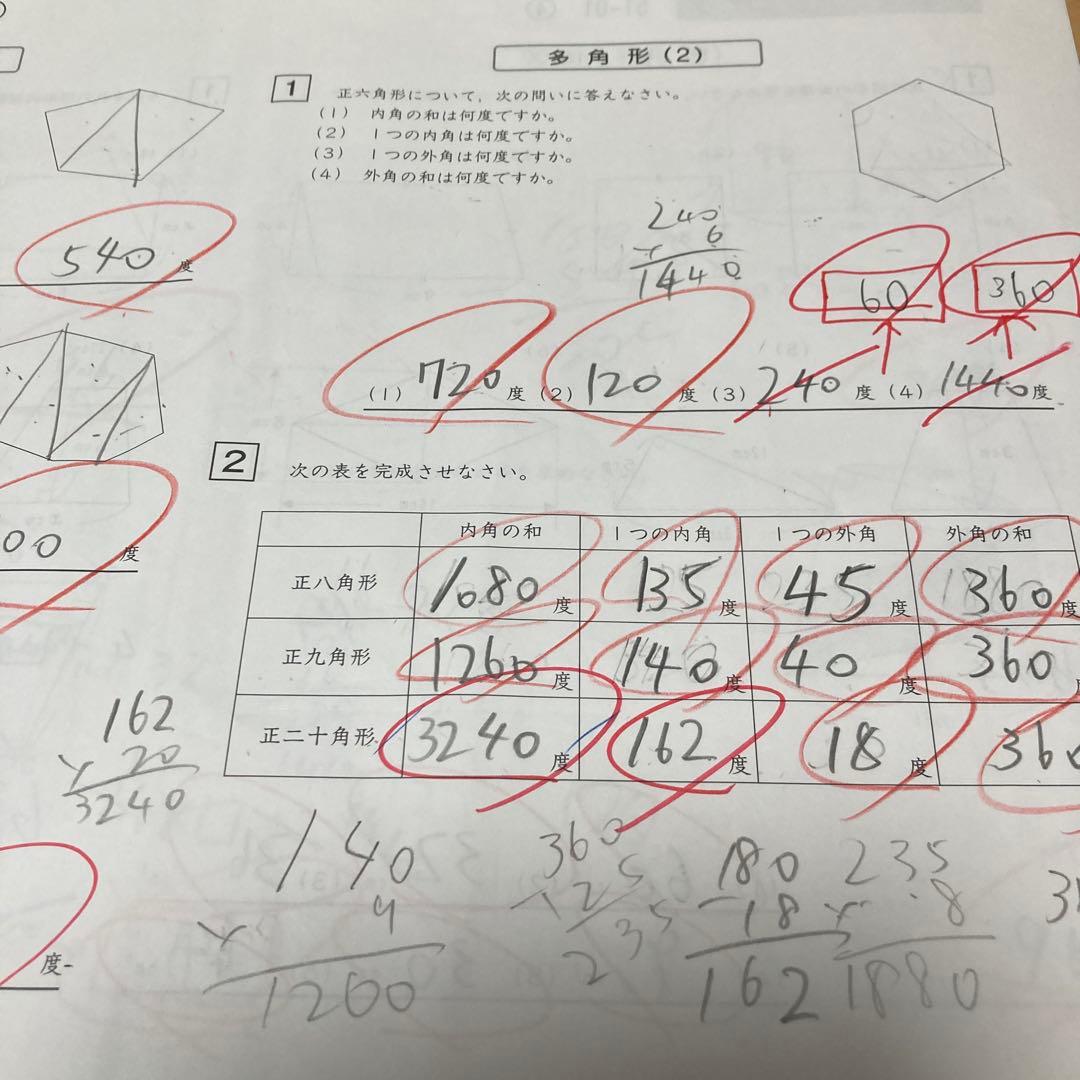 多角形(2)
1 正六角形について,次の問いに答えなさい。
(1) 内角の和は何度ですか。
(2) 1つの内角は何度ですか。
(3) 1つの外角は何度ですか。
(4) 外角の和は何度ですか。
540 度
240
× 6
1440
60 360
(1) 720 度 (2) 120 度 (3) 240 度 (4) 1440 度
00 度
2 次の表を完成させなさい。
内角の和 1つの内角 1つの外角 外角の和
正八角形 1080 度 135 度 45 度 360 度
正九角形 1260 度 140 度 40 度 360
正二十角形 3240 度 162 度 18 度 360
162
× 20
3240
度
140
× 9
1260
360
- 125
235
180
- 18
162
235
× 8
1880